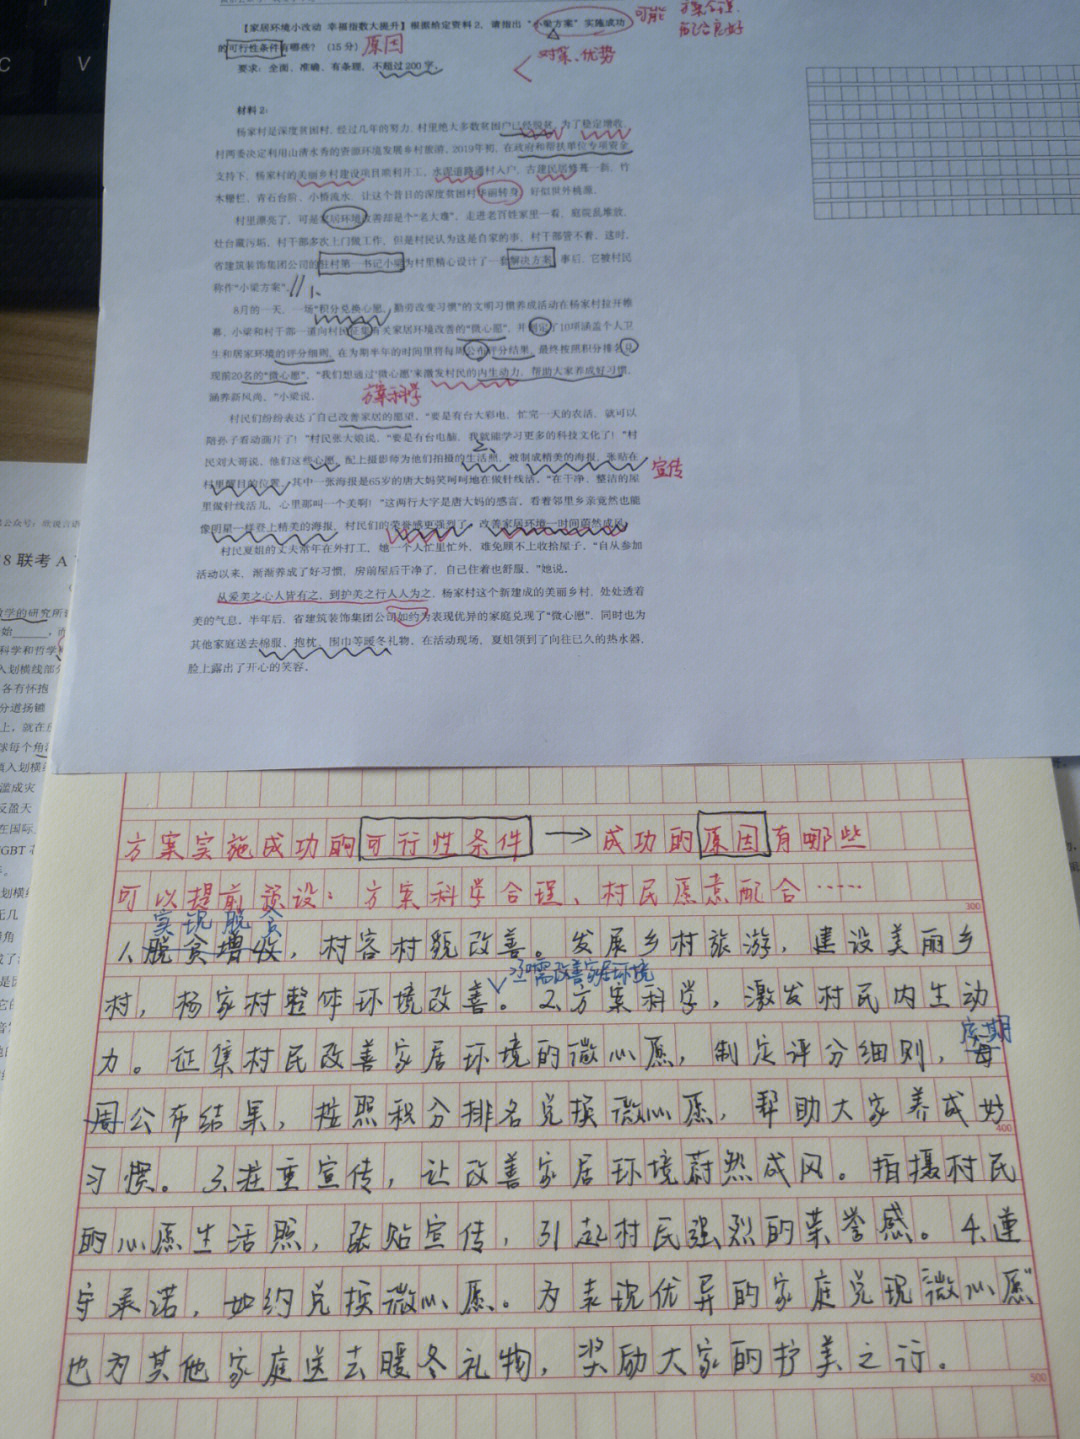 【家居环境小改动 幸福指数大提升】根据给定资料2，请指出“小梁方案”实施成功
的可行性条件有哪些？（15分）
要求：全面、准确、有条理，不超过200字。
可能
配合良好
原因
对策、优势
材料2：
杨家村是深度贫困村，经过几年的努力，村里绝大多数贫困户已经脱贫，为了稳定增收，
村两委决定利用山清水秀的资源环境发展乡村旅游。2019年初，在政府和帮扶单位专项资金
支持下，杨家村的美丽乡村建设项目顺利开工，水泥道路通村入户，古建民居修葺一新，竹
木栅栏、青石台阶、小桥流水，让这个昔日的深度贫困村华丽转身，好似世外桃源。
村里漂亮了，可是家居环境改善却是个“老大难”，走进老百姓家里一看，庭院乱堆放，
灶台藏污垢，村干部多次上门做工作，但是村民认为这是自家的事，村干部管不着。这时，
省建筑装饰集团公司的驻村第一书记小梁为村里精心设计了一套解决方案，事后，它被村民
称作“小梁方案”。
1、
8月的一天，一场“积分兑换心愿，勤劳改变习惯”的文明习惯养成活动在杨家村拉开帷
幕，小梁和村干部一道向村民征集有关家居环境改善的“微心愿”，并制定了10项涵盖个人卫
生和居家环境的评分细则，在为期半年的时间里将每周公布评分结果，最终按照积分排名兑
现前20名的“微心愿”，“我们想通过‘微心愿’来激发村民的内生动力，帮助大家养成好习惯，
涵养新风尚。”小梁说。
方案科学
村民们纷纷表达了自己改善家居的愿望，“要是有台大彩电，忙完一天的农活，就可以
陪孙子看动画片了！”村民张大娘说，“要是有台电脑，我就能学习更多的科技文化了！”村
2、
民刘大哥说。他们这些心愿，配上摄影师为他们拍摄的生活照，被制成精美的海报，张贴在
村里醒目的位置，其中一张海报是65岁的唐大妈笑呵呵地在做针线活，“在干净、整洁的屋
宣传
里做针线活儿，心里那叫一个美啊！”这两行大字是唐大妈的感言，看着邻里乡亲竟然也能
像明星一样登上精美的海报，村民们的荣誉感更强烈了，改善家居环境一时间蔚然成风。
村民夏姐的丈夫常年在外打工，她一个人忙里忙外，难免顾不上收拾屋子，“自从参加
活动以来，渐渐养成了好习惯，房前屋后干净了，自己住着也舒服。”她说。
从爱美之心人皆有之，到护美之行人人为之，杨家村这个新建成的美丽乡村，处处透着
美的气息，半年后，省建筑装饰集团公司如约为表现优异的家庭兑现了“微心愿”，同时也为
其他家庭送去棉服、抱枕、围巾等暖冬礼物，在活动现场，夏姐领到了向往已久的热水器，
脸上露出了开心的笑容。
8联考A
方案实施成功的可行性条件→成功的原因有哪些
可以提前预设：方案科学合理、村民愿意配合……
300
实现脱贫
1、脱贫增收，村容村貌改善。发展乡村旅游，建设美丽乡
还需改善家居环境
村，杨家村整体环境改善。2、方案科学，激发村民内生动
周期
力。征集村民改善家居环境的微心愿，制定评分细则，每
周公布结果，按照积分排名兑换微心愿，帮助大家养成好
400
习惯。3、注重宣传，让改善家居环境蔚然成风。拍摄村民
的心愿生活照，张贴宣传，引起村民强烈的荣誉感。4、遵
守承诺，如约兑换微心愿。为表现优异的家庭兑现“微心愿”
也为其他家庭送去暖冬礼物，奖励大家的护美之行。
500